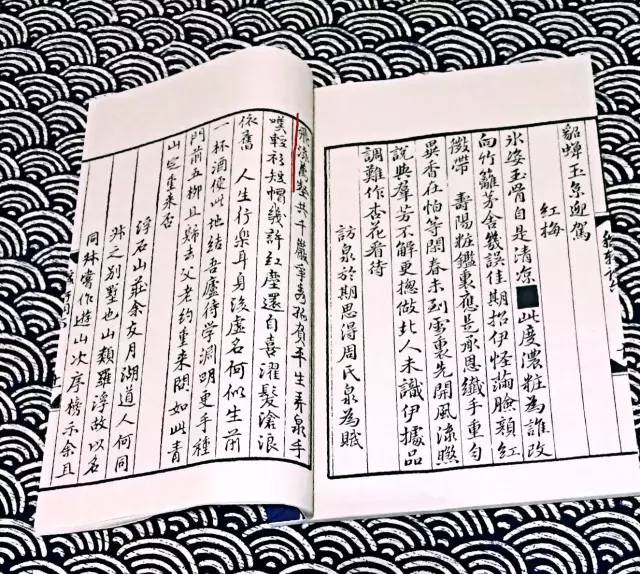 貂蟬玉迎駕
紅梅
冰姿玉骨自是清凉■此度濃粧為誰改
向竹籬茅舍幾誤佳期招伊怪滿臉顏紅
微帶 壽陽粧鑑裏應是承恩纖手重勻
異香在怕等閑春未到雪裏先開風流煞
說與羣芳不解更揔做北人未識伊據品
調難作杏花看待
訪泉於期思得周氏泉為賦
飛流萬壑共千巖爭秀孤負平生弄泉手
嘆輕衫短帽幾許紅塵還自喜濯髮滄浪
依舊 人生行樂耳身後虛名何似生前
一杯酒便此地結吾廬待學淵明更手種
門前五柳且歸去父老約重來問如此青
山定重來否
浮石山莊余友月湖道人何同
叔之別墅也山類羅浮故以名
同叔嘗作遊山次序榜示余且